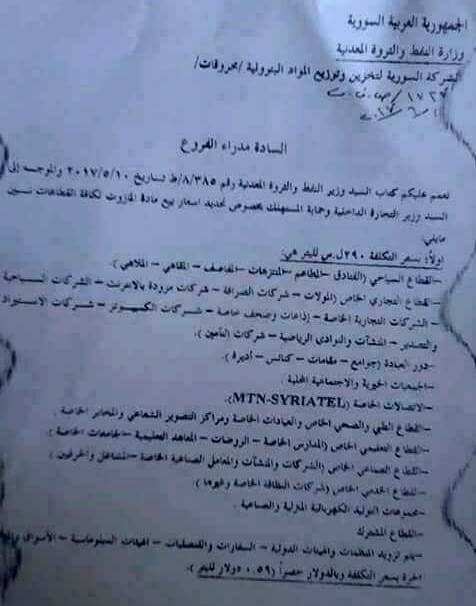 الجمهورية العربية السورية
وزارة النفط والثروة المعدنية
الشركة السورية لتخزين وتوزيع المواد البترولية /محروقات/
السادة مدراء الفروع
نعمم عليكم كتاب السيد وزير النفط والثروة المعدنية رقم ٨/٣٨٥/ط تاريخ ٢٠١٧/٥/١٠ والموجه إلى
السيد وزير التجارة الداخلية وحماية المستهلك بخصوص تحديد اسعار بيع مادة المازوت لكافة القطاعات نبين
مايلي:
اولاً: بسعر التكلفة ٢٩٠ ل.س لليتر هي:
–القطاع السياحي (الفنادق – المطاعم – المنتزهات – المقاصف – المقاهي – الملاهي).
–القطاع التجاري الخاص (المولات – شركات الصرافة – شركات مزودة بالانترنت – الشركات السياحية
– الشركات التجارية الخاصة – إذاعات وصحف خاصة – شركات الكمبيوتر – شركات الاستيراد
والتصدير – المنشآت والنوادي الرياضية – شركات التأمين).
–دور العبادة (جوامع – مقامات – كنائس – أديرة).
–الجمعيات الخيرية والاجتماعية المحلية
–الاتصالات الخاصة (MTN-SYRIATEL).
–القطاع الطبي والصحي الخاص والعيادات الخاصة ومراكز التصوير الشعاعي والمخابر الخاصة
–القطاع التعليمي الخاص (المدارس الخاصة – الروضات – المعاهد التعليمية –الجامعات الخاصة).
–القطاع الصناعي الخاص (الشركات والمنشآت والمعامل الصناعية الخاصة –المشاغل والحرفيين)
–القطاع الخدمي الخاص (شركات النظافة الخاصة وغيرها).
–مجموعات التوليد الكهربائية المنزلية والصناعية
–القطاع المشترك
–يتم تزويد المنظمات والهيئات الدولية – السفارات والقنصليات – الهيئات الدبلوماسية – الأسواق
الحرة بسعر التكلفة وبالدولار حصراً (٠.٥٩ دولار لليتر).